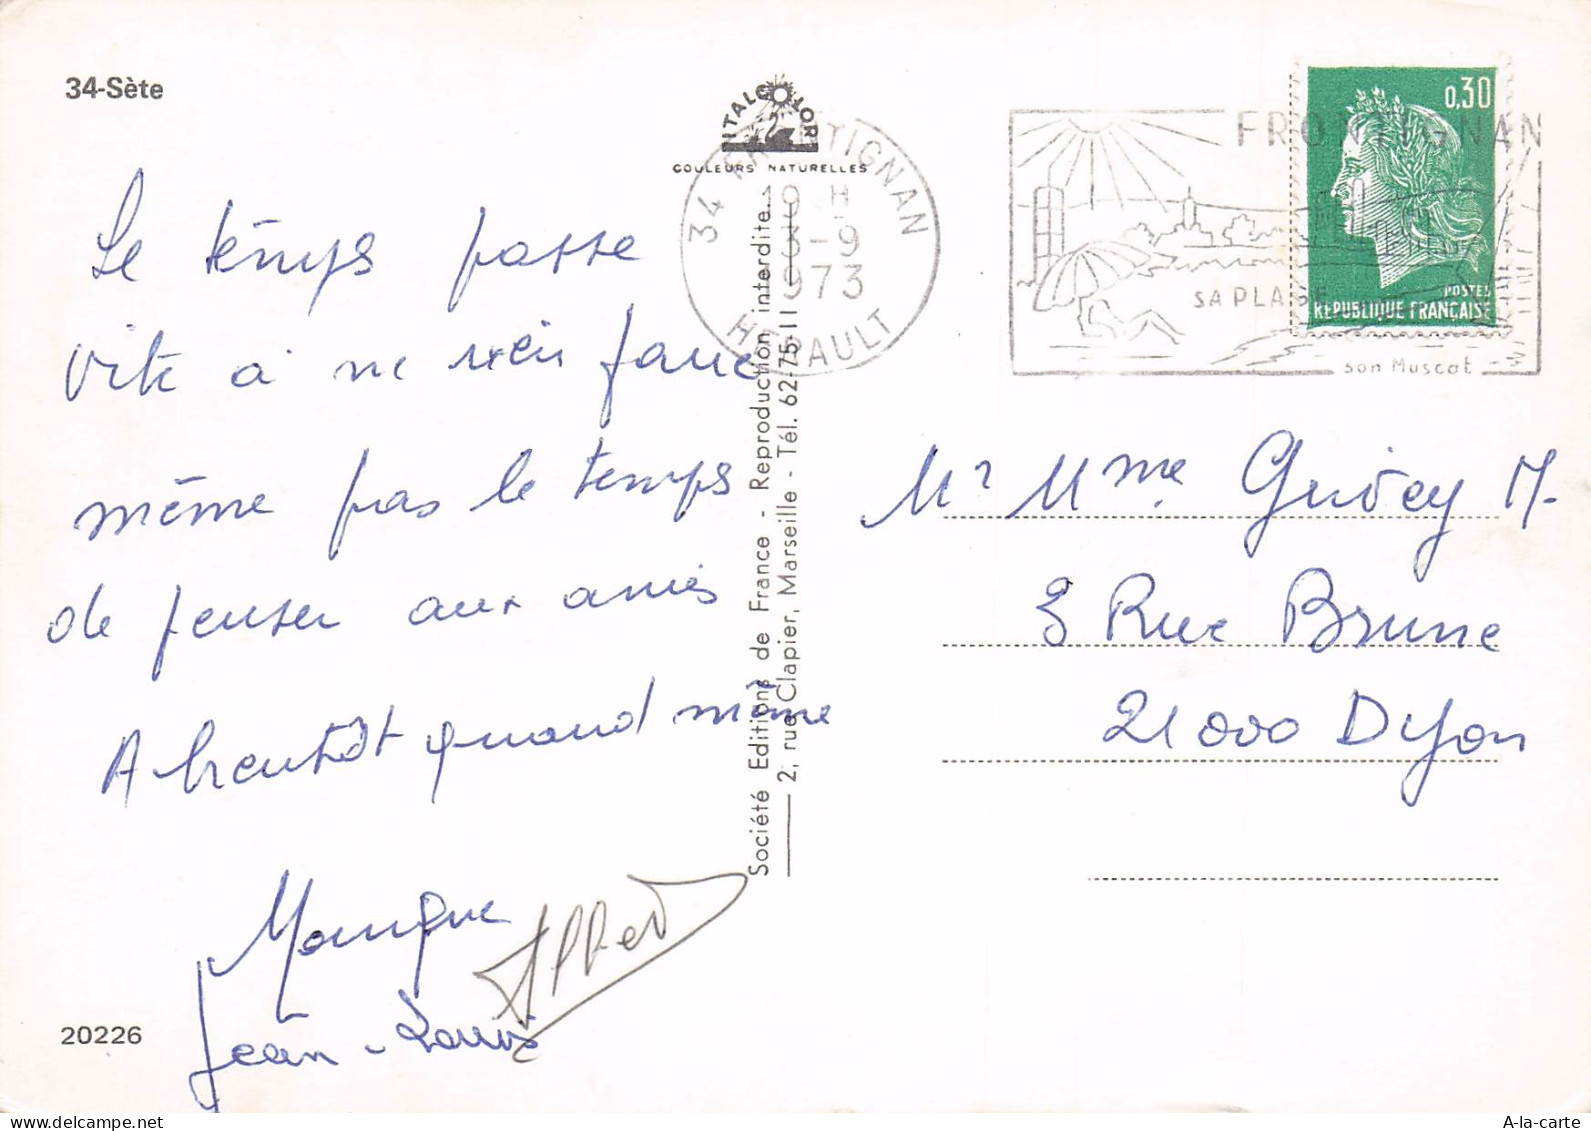 34-Sète
Le temps passe
vite à ne rien faire
même pas le temps
de penser aux amis
A bientôt quand même
Monique
Jean-Louis
Alfred
20226
ITALCOLOR
COULEURS NATURELLES
Société Editions de France - Reproduction interdite
2, rue Clapier, Marseille - Tél. 62-75-11
34 FRONTIGNAN
19 H
3-9
1973
HERAULT
FRONTIGNAN
SA PLAGE
son Muscat
0,30
POSTES
REPUBLIQUE FRANÇAISE
Mr Mme Guidey M.
3 Rue Brune
21000 Dijon
A-la-carte